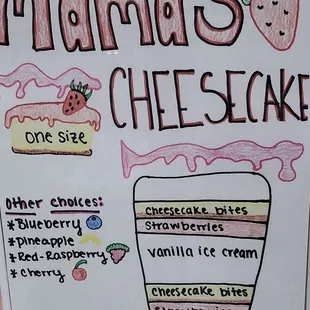 Mama's
CHEESECAKE
one size
Other choices:
*Blueberry
*pineapple
*Red-Raspberry
*Cherry
cheesecake bites
Strawberries
vanilla ice cream
cheesecake bites